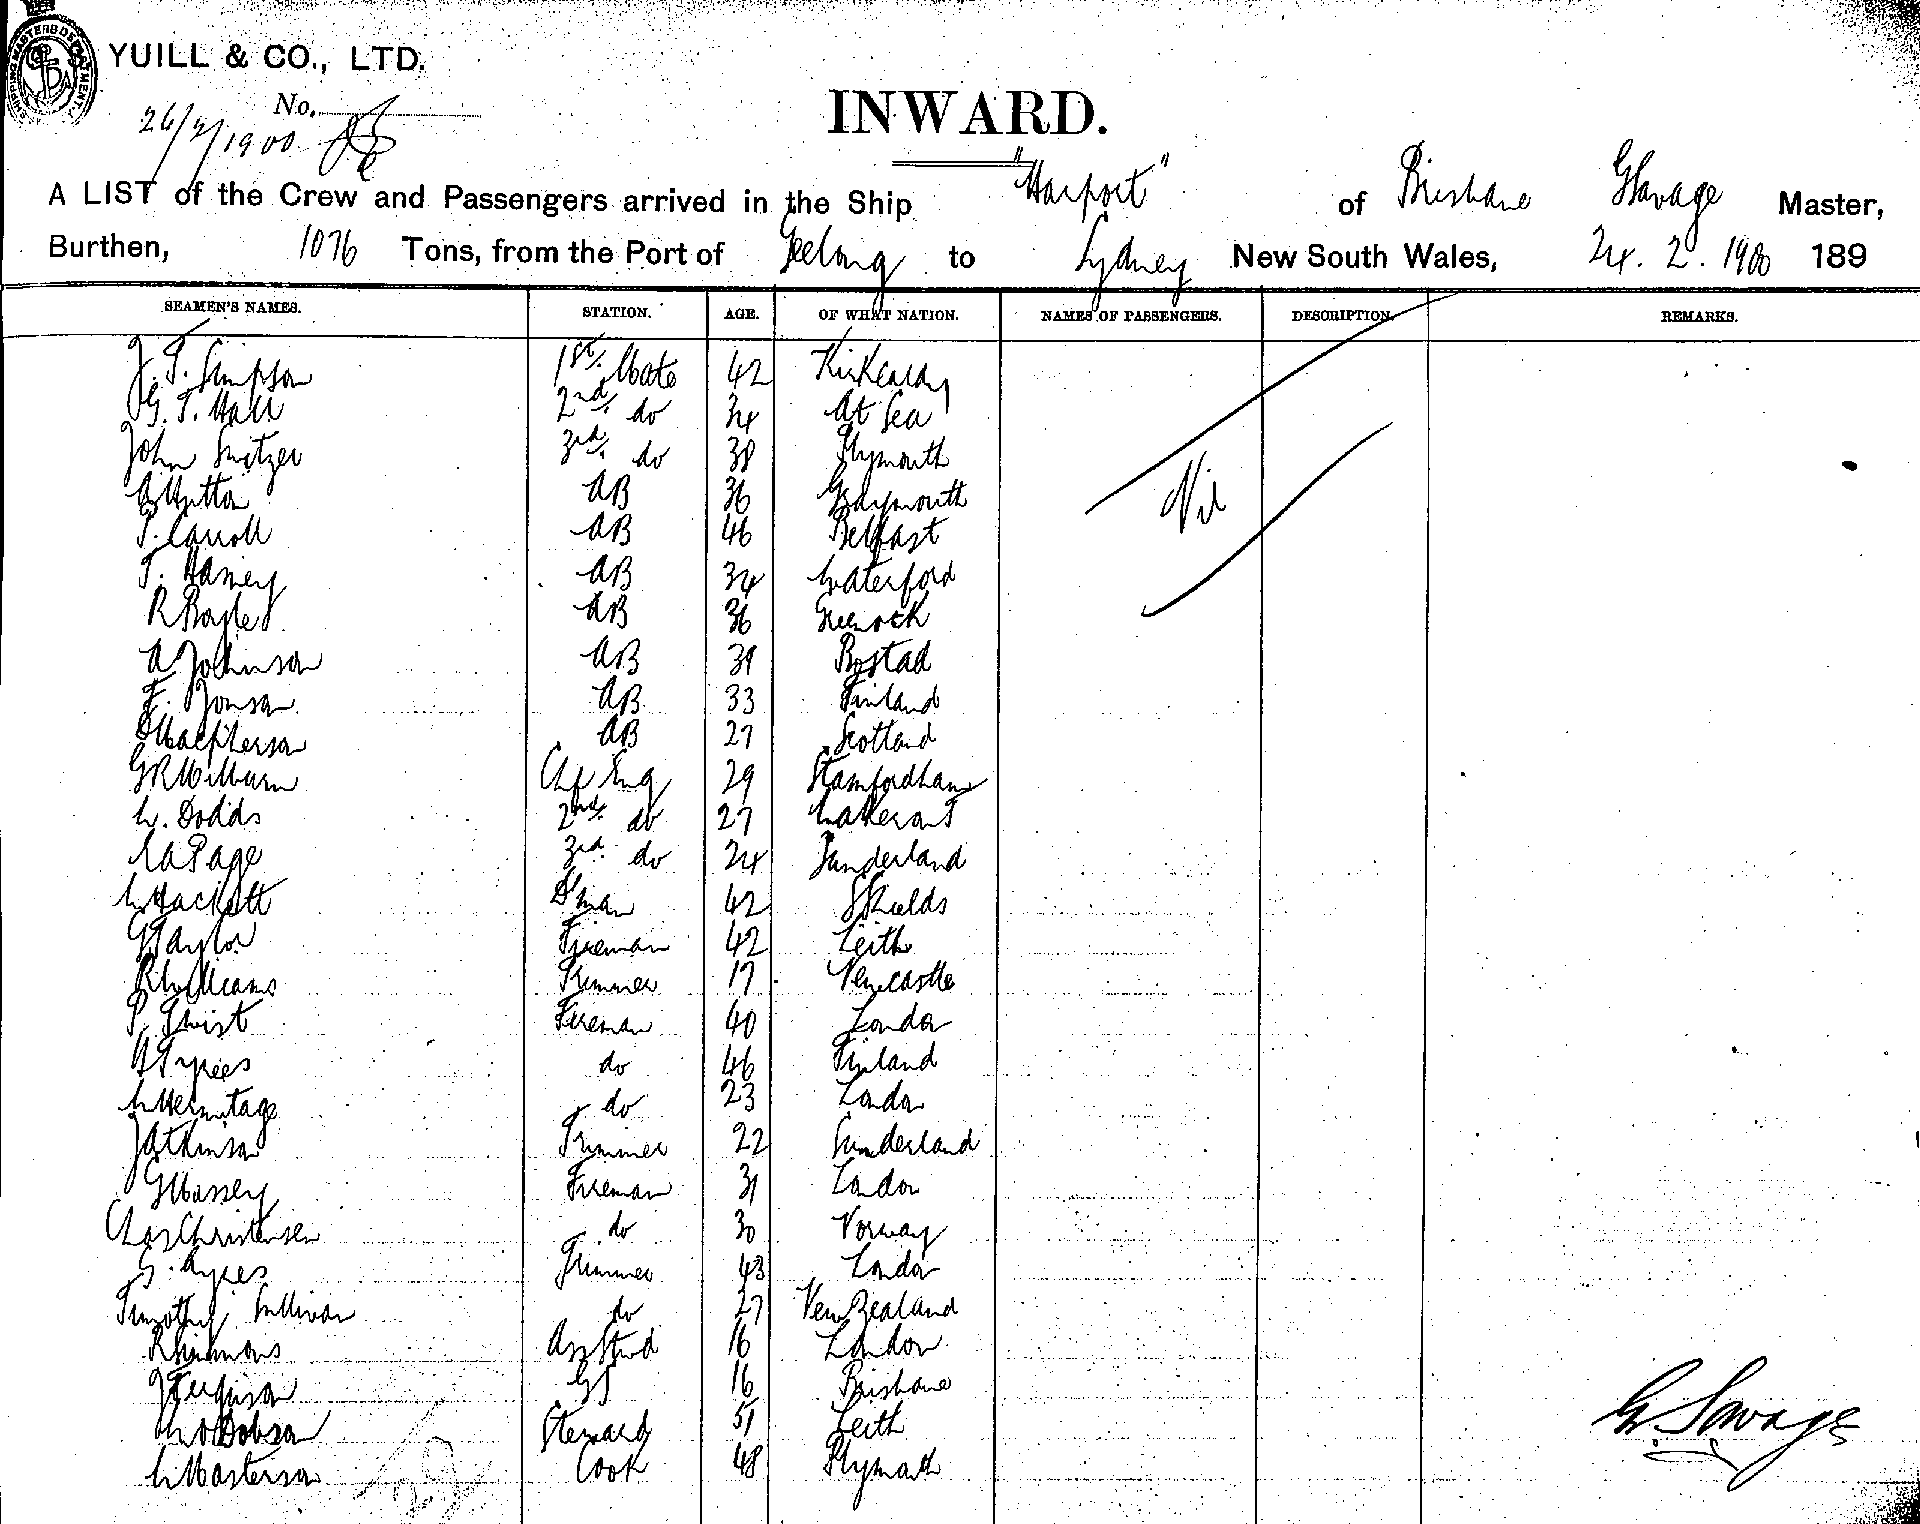 SHIPPING MASTERS DEPARTMENT.
YUILL & CO., LTD.
No.
26/2/1900
INWARD.
A LIST of the Crew and Passengers arrived in the Ship "Harport" of Brisbane G Savage Master,
Burthen, 1076 Tons, from the Port of Geelong to Sydney New South Wales, 24. 2. 1900 189
SEAMEN'S NAMES. STATION. AGE. OF WHAT NATION. NAMES OF PASSENGERS. DESCRIPTION. REMARKS.
J. T. Simpson 1st. Mate 42 Kirkcaldy
G. T. Hall 2nd. do 34 At Sea
John Switzer 3rd. do 38 Plymouth
AB 36 Graymouth
Nil
T. Carroll AB 46 Belfast
T. AB 34 Waterford
R Boyle AB 36 Greenock
A Johnson AB 39
F. Jonson AB 33 Finland
D Macpherson AB 27 Scotland
G R Milburn Chf Eng 29 Stamfordham
W. Dodds 2nd. do 27
Page 3rd. do 24 Sunderland
W Hackett D'man 42 Shields
G Taylor Fireman 42 Leith
R Williams Trimmer 17 Newcastle
P. Twist Fireman 40 London
do 46 Finland
W Hermitage do 23 London
J Atkinson Trimmer 22 Sunderland
G Massey Fireman 31 London
Chas Christensen do 30 Norway
G. Ayres Trimmer 43 London
Timothy Sullivan do 27 New Zealand
R Simmons Ass Stwd 16 London
J Ferguson GS 16 Brisbane
Dobson Steward 51 Leith
W Masterson Cook 48 Plymouth
G Savage
28